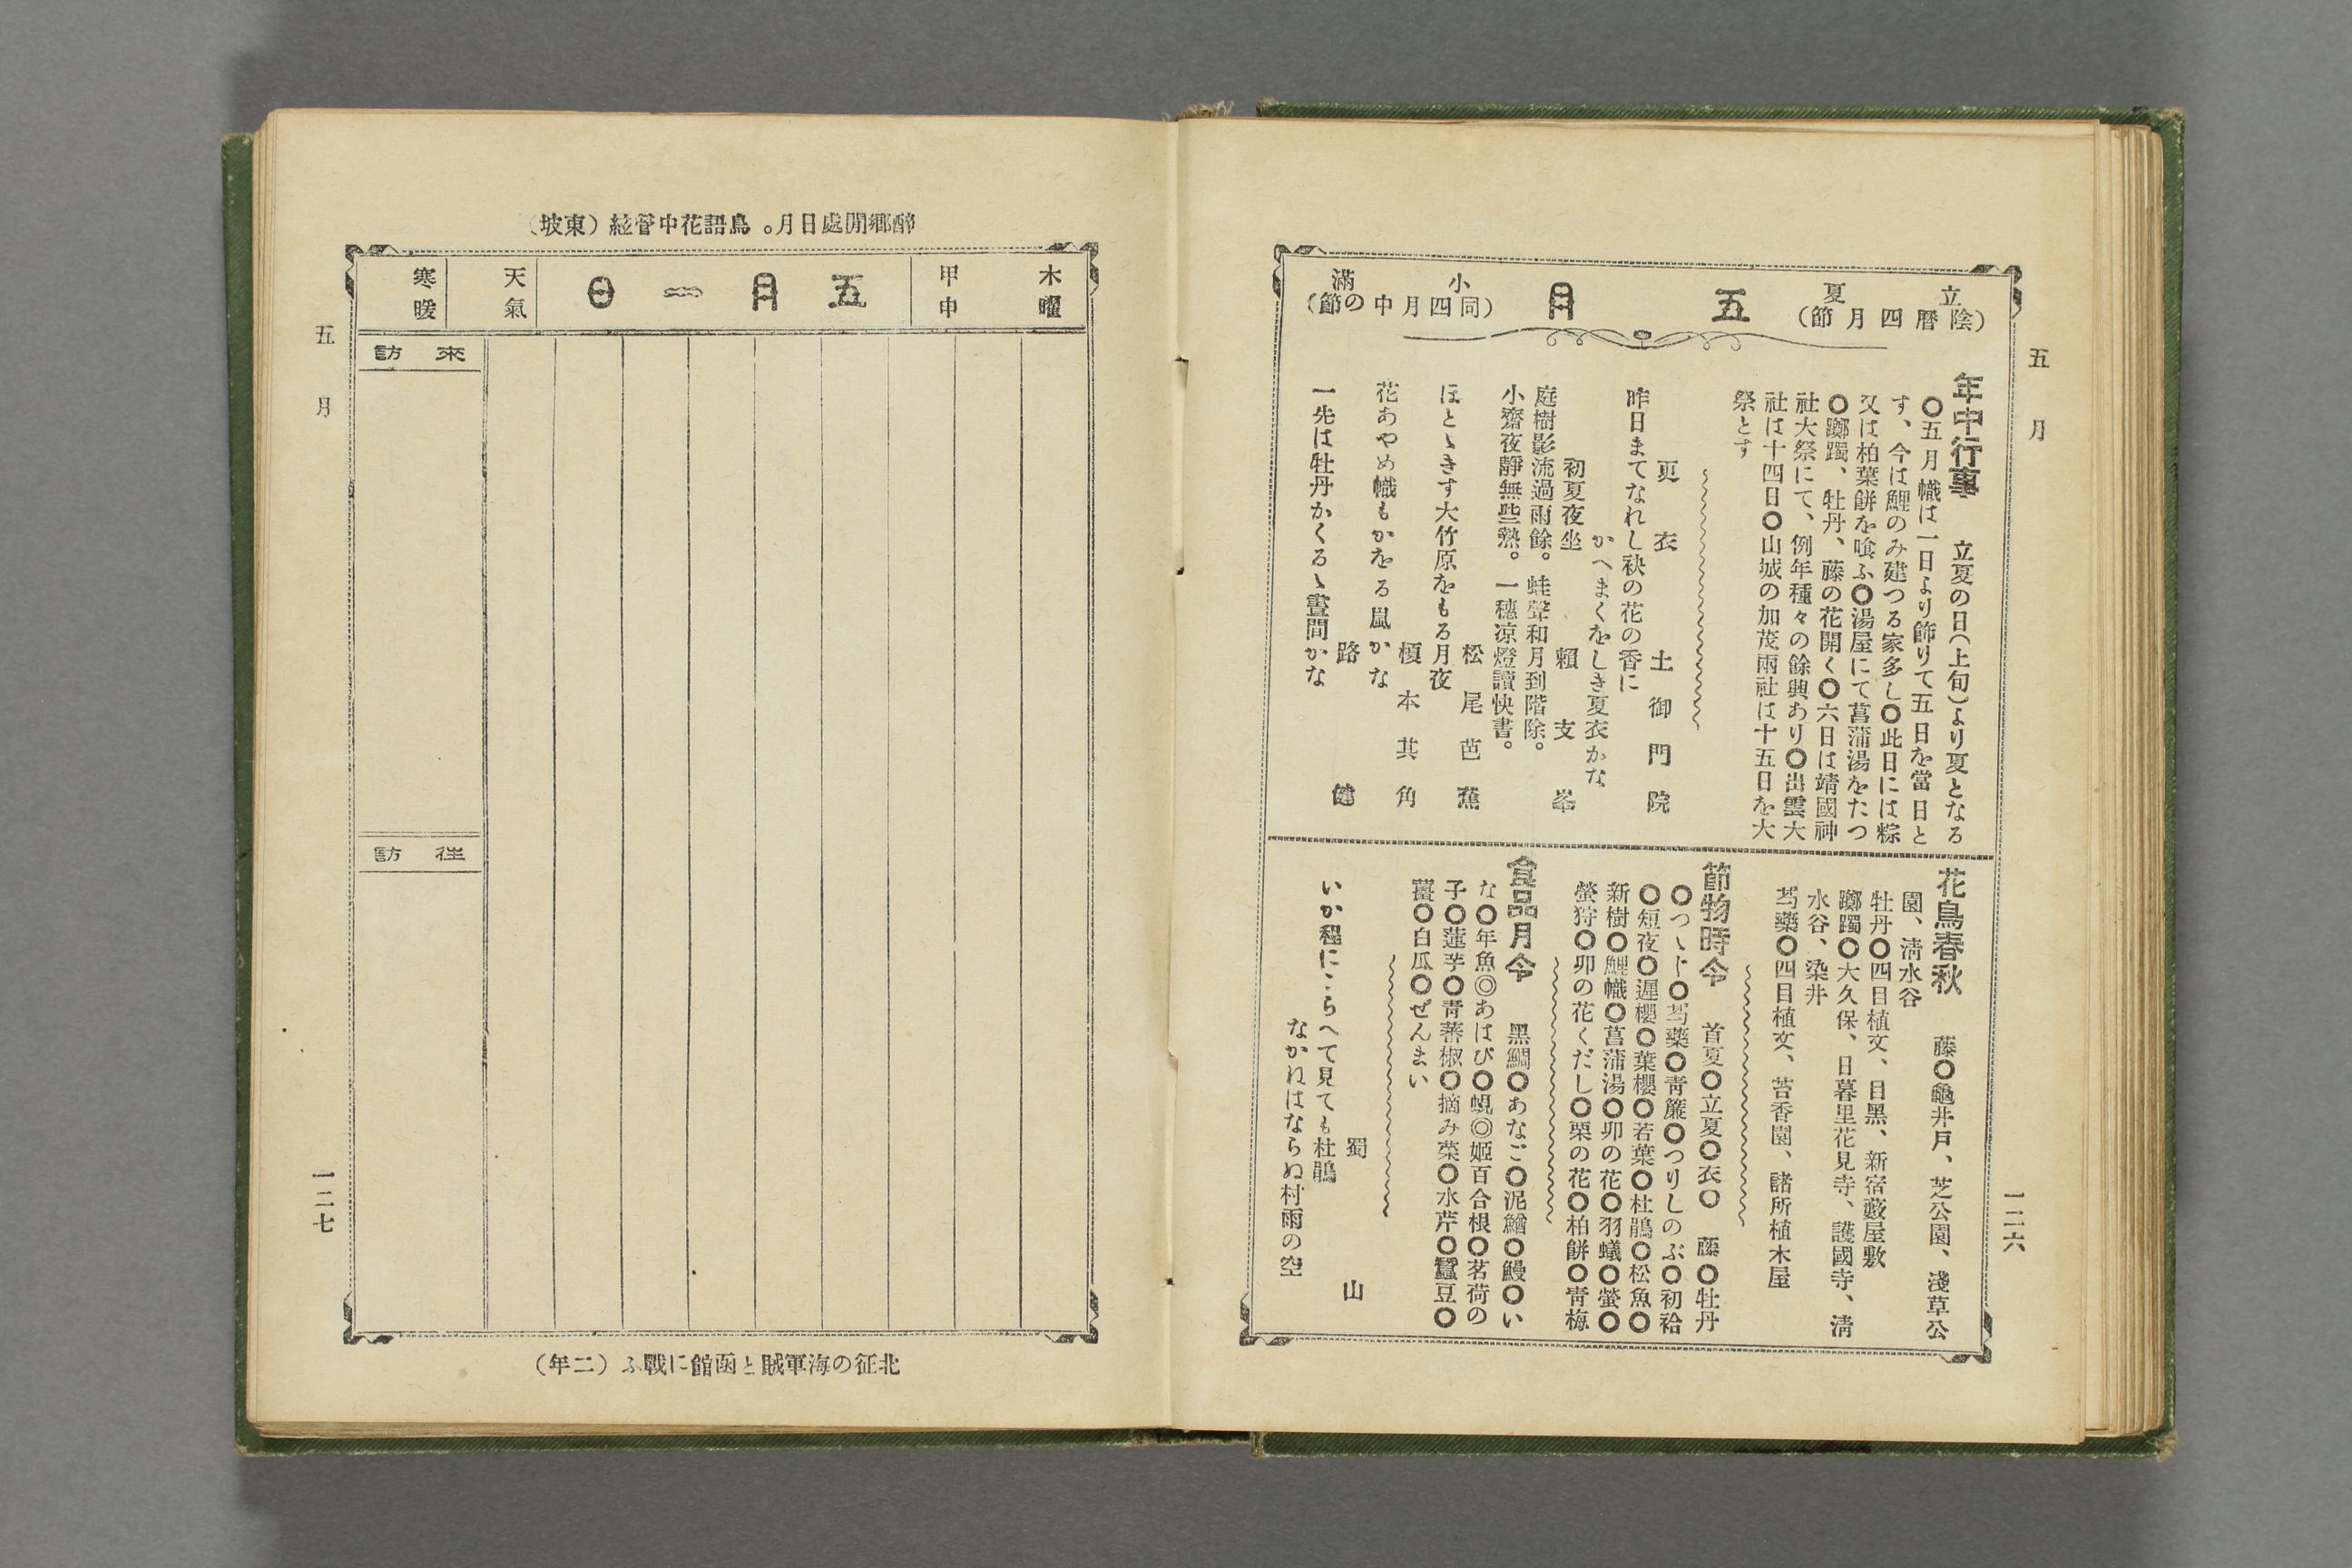 五月
一二六
立夏
(陰曆四月節)
五月
小滿
(同四月中の節)
年中行事 立夏の日(上旬)より夏となる
〇五月幟は一日より飾りて五日を當日と
す、今は鯉のみ建つる家多し〇此日には粽
又は柏葉餅を喰ふ〇湯屋にて菖蒲湯をたつ
〇躑躅、牡丹、藤の花開く〇六日は靖國神
社大祭にて、例年種々の餘興あり〇出雲大
社は十四日〇山城の加茂兩社は十五日を大
祭とす
更衣 土御門院
昨日まてなれし袂の花の香に
かへまくをしき夏衣かな
初夏夜坐 賴支峯
庭樹影流過雨餘。蛙聲和月到階除。
小齋夜靜無些熱。一穗凉燈讀快書。
松尾芭蕉
ほとゝきす大竹原をもる月夜
榎本其角
花あやめ幟もかをる嵐かな
路健
一先は牡丹かくるゝ晝間かな
花鳥春秋 藤〇龜井戶、芝公園、淺草公
園、淸水谷
牡丹〇四目植文、目黑、新宿藪屋敷
躑躅〇大久保、日暮里花見寺、護國寺、淸
水谷、染井
芍藥〇四目植文、苔香園、諸所植木屋
節物時令 首夏〇立夏〇衣〇 藤〇牡丹
〇つゝじ〇芍藥〇靑簾〇つりしのぶ〇初袷
〇短夜〇遲櫻〇葉櫻〇若葉〇杜鵑〇松魚〇
新樹〇鯉幟〇菖蒲湯〇卯の花〇羽蟻〇螢〇
螢狩〇卯の花くだし〇栗の花〇柏餅〇靑梅
食品月令 黑鯛〇あなご〇泥鰌〇鰻〇い
な〇年魚◎あはび〇蜆◎姬百合根〇茗荷の
子〇蓮芋〇靑蕃椒〇摘み菜〇水芹〇蠶豆〇
薑〇白瓜〇ぜんまい
蜀山
いか程にこらへて見ても杜鵑
なかねはならぬ村雨の空
醉鄕閒處日月。鳥語花中管絃(東坡)
木曜
甲申
五月一日
天氣
寒暖
來訪
往訪
北征の海軍賊と函館に戰ふ(二年)
五月
一二七